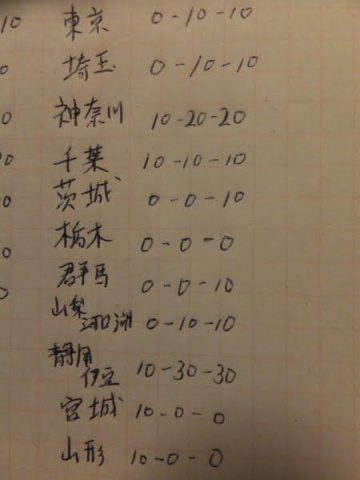 10 東京 0-10-10
0 埼玉 0-10-10
0 神奈川 10-20-20
0 千葉 10-10-10
0 茨城 0-0-10
0 栃木 0-0-0
0 群馬 0-0-10
山梨
河口湖 0-10-10
静岡
伊豆 10-30-30
宮城 10-0-0
山形 10-0-0